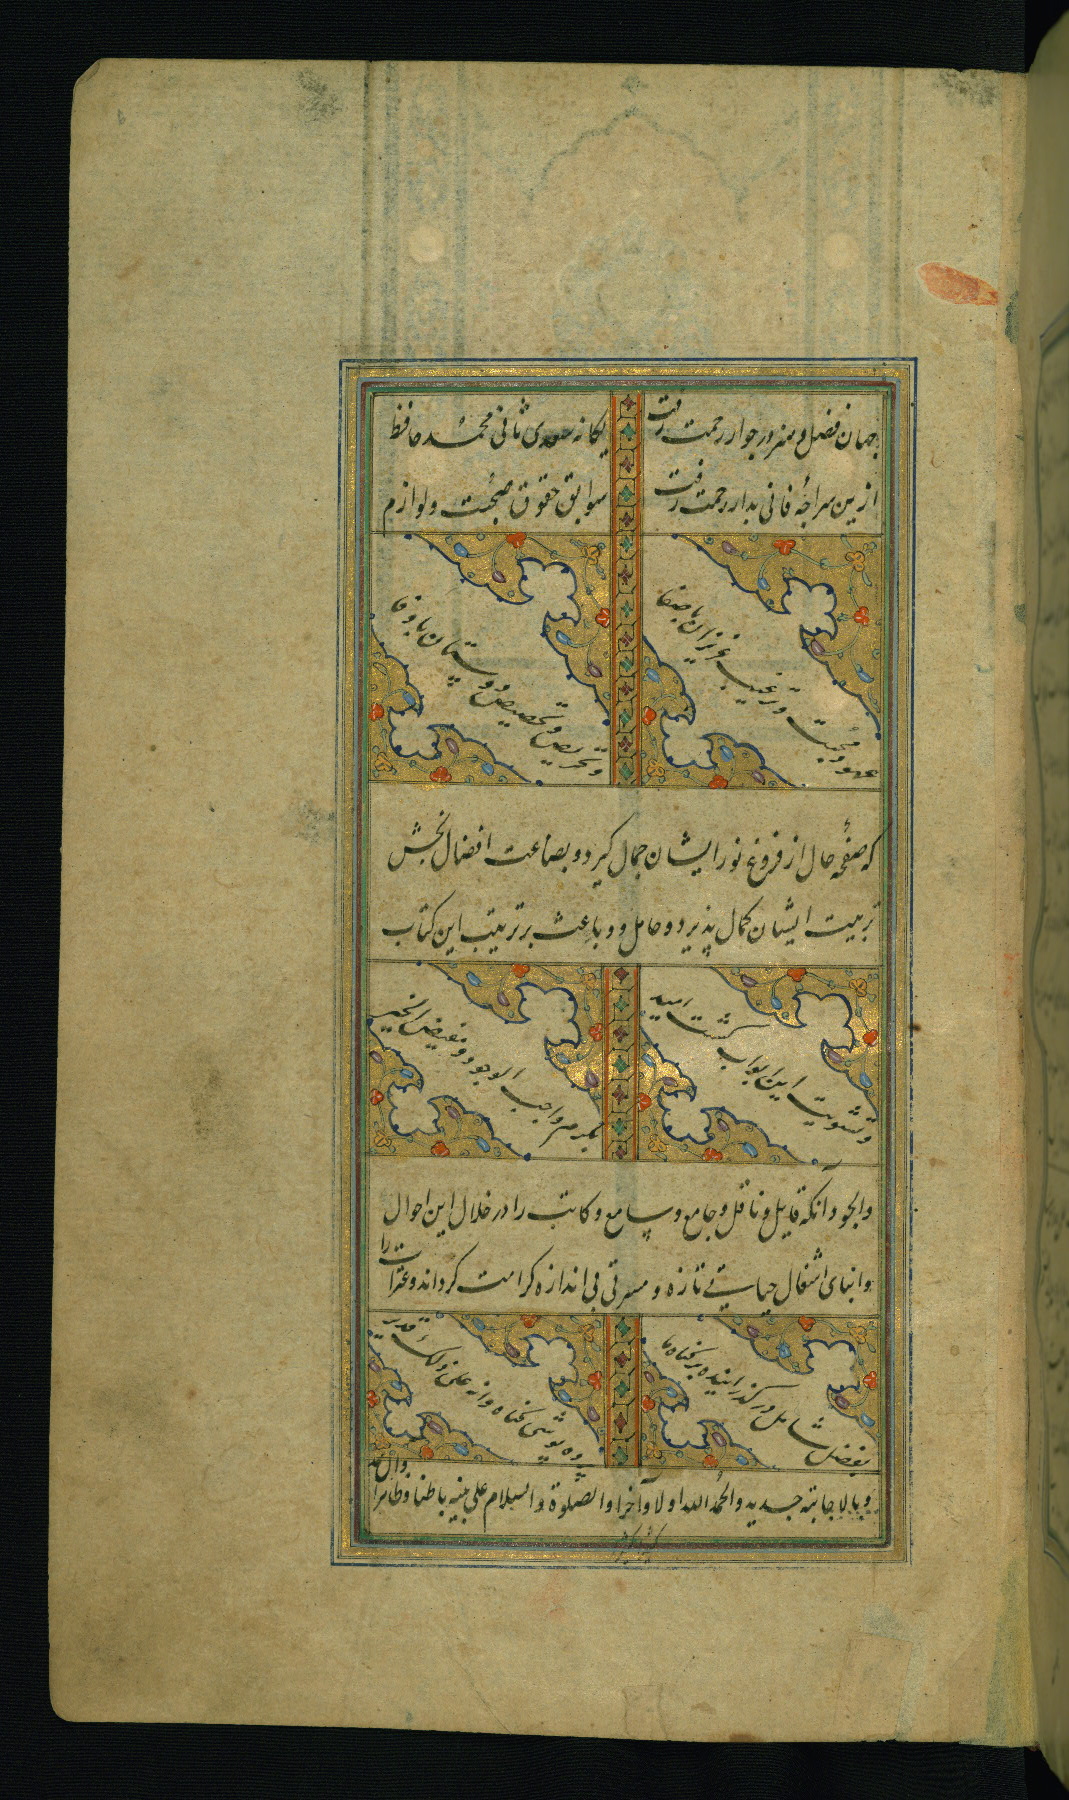 جهان فضل و هنر در جوار رحمت رفت
یکانه سعدی ثانی محمد حافظ
ازین سراچهٔ فانی بدار رحمت رفت
سوابق حقوق صحبت و لوازم
عهود محبت و ترغیب عزیزان باصفا
و تحریص و تخصیص دوستان باوفا
که صفحهٔ حال از فروغ نور ایشان جمال کیرد و بضاعت افضال بخش
تربیت ایشان کمال پذیرد و حامل و باعث بر ترتیب این کتاب
و تسویت این ابواب کشت امید
بکرم واجب الوجود و مفیض الخیر
والجود آنکه قایل و ناقل و جامع و سامع و کاتب را در خلال این احوال
و اثنای اشغال حیاتی تازه و مسرتی بی اندازه کرامت کرداند و عثرات را
بفضل شامل درکذرانیده بر کناه ما
پرده پوشی کناه وانه علی ذلک قدیر
و بالاجابة جدیر والحمد لله اولا وآخرا والصلوة والسلام علی نبیه باطنا وظاهرا